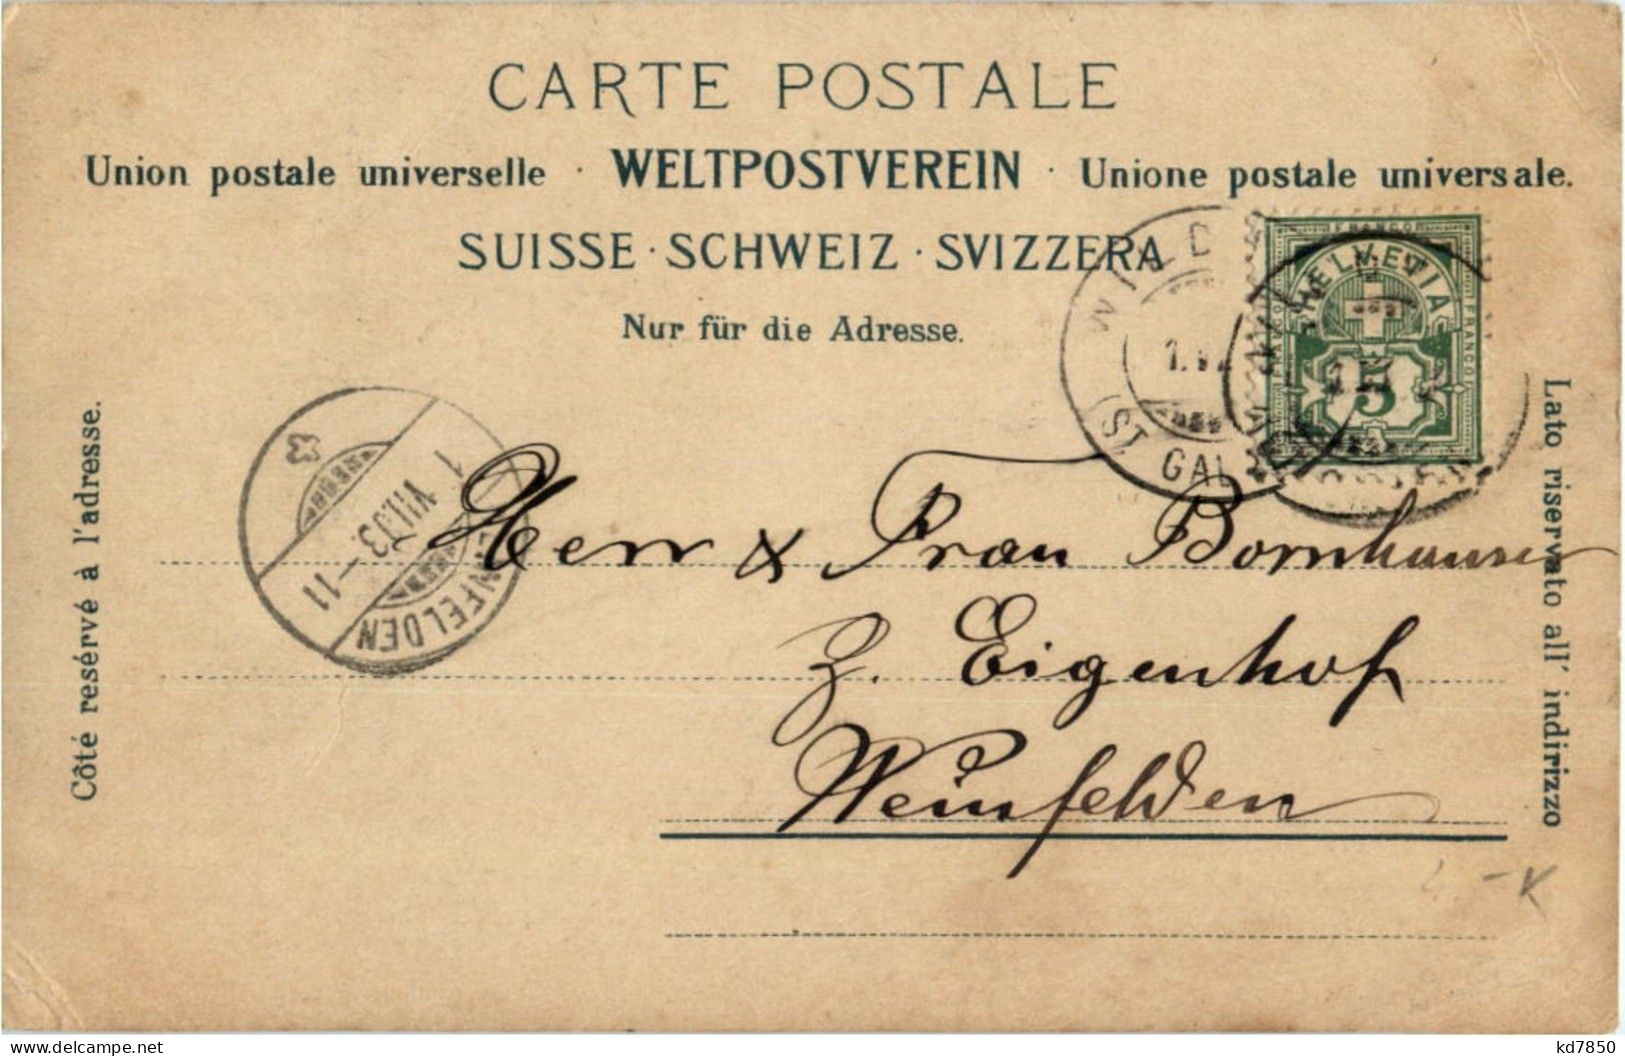 CARTE POSTALE
Union postale universelle · WELTPOSTVEREIN · Unione postale universale.
SUISSE · SCHWEIZ · SVIZZERA
Nur für die Adresse.
Côté resérvé à l'adresse.
Lato riservato all' indirizzo
HELVETIA
FRANCO
5
WILD
(ST. GAL
1.VII.03-11
INFELDEN
Herr & Frau Bornhauser
z. Eigenhof
Weinfelden
- K
delcampe.net
kd7850